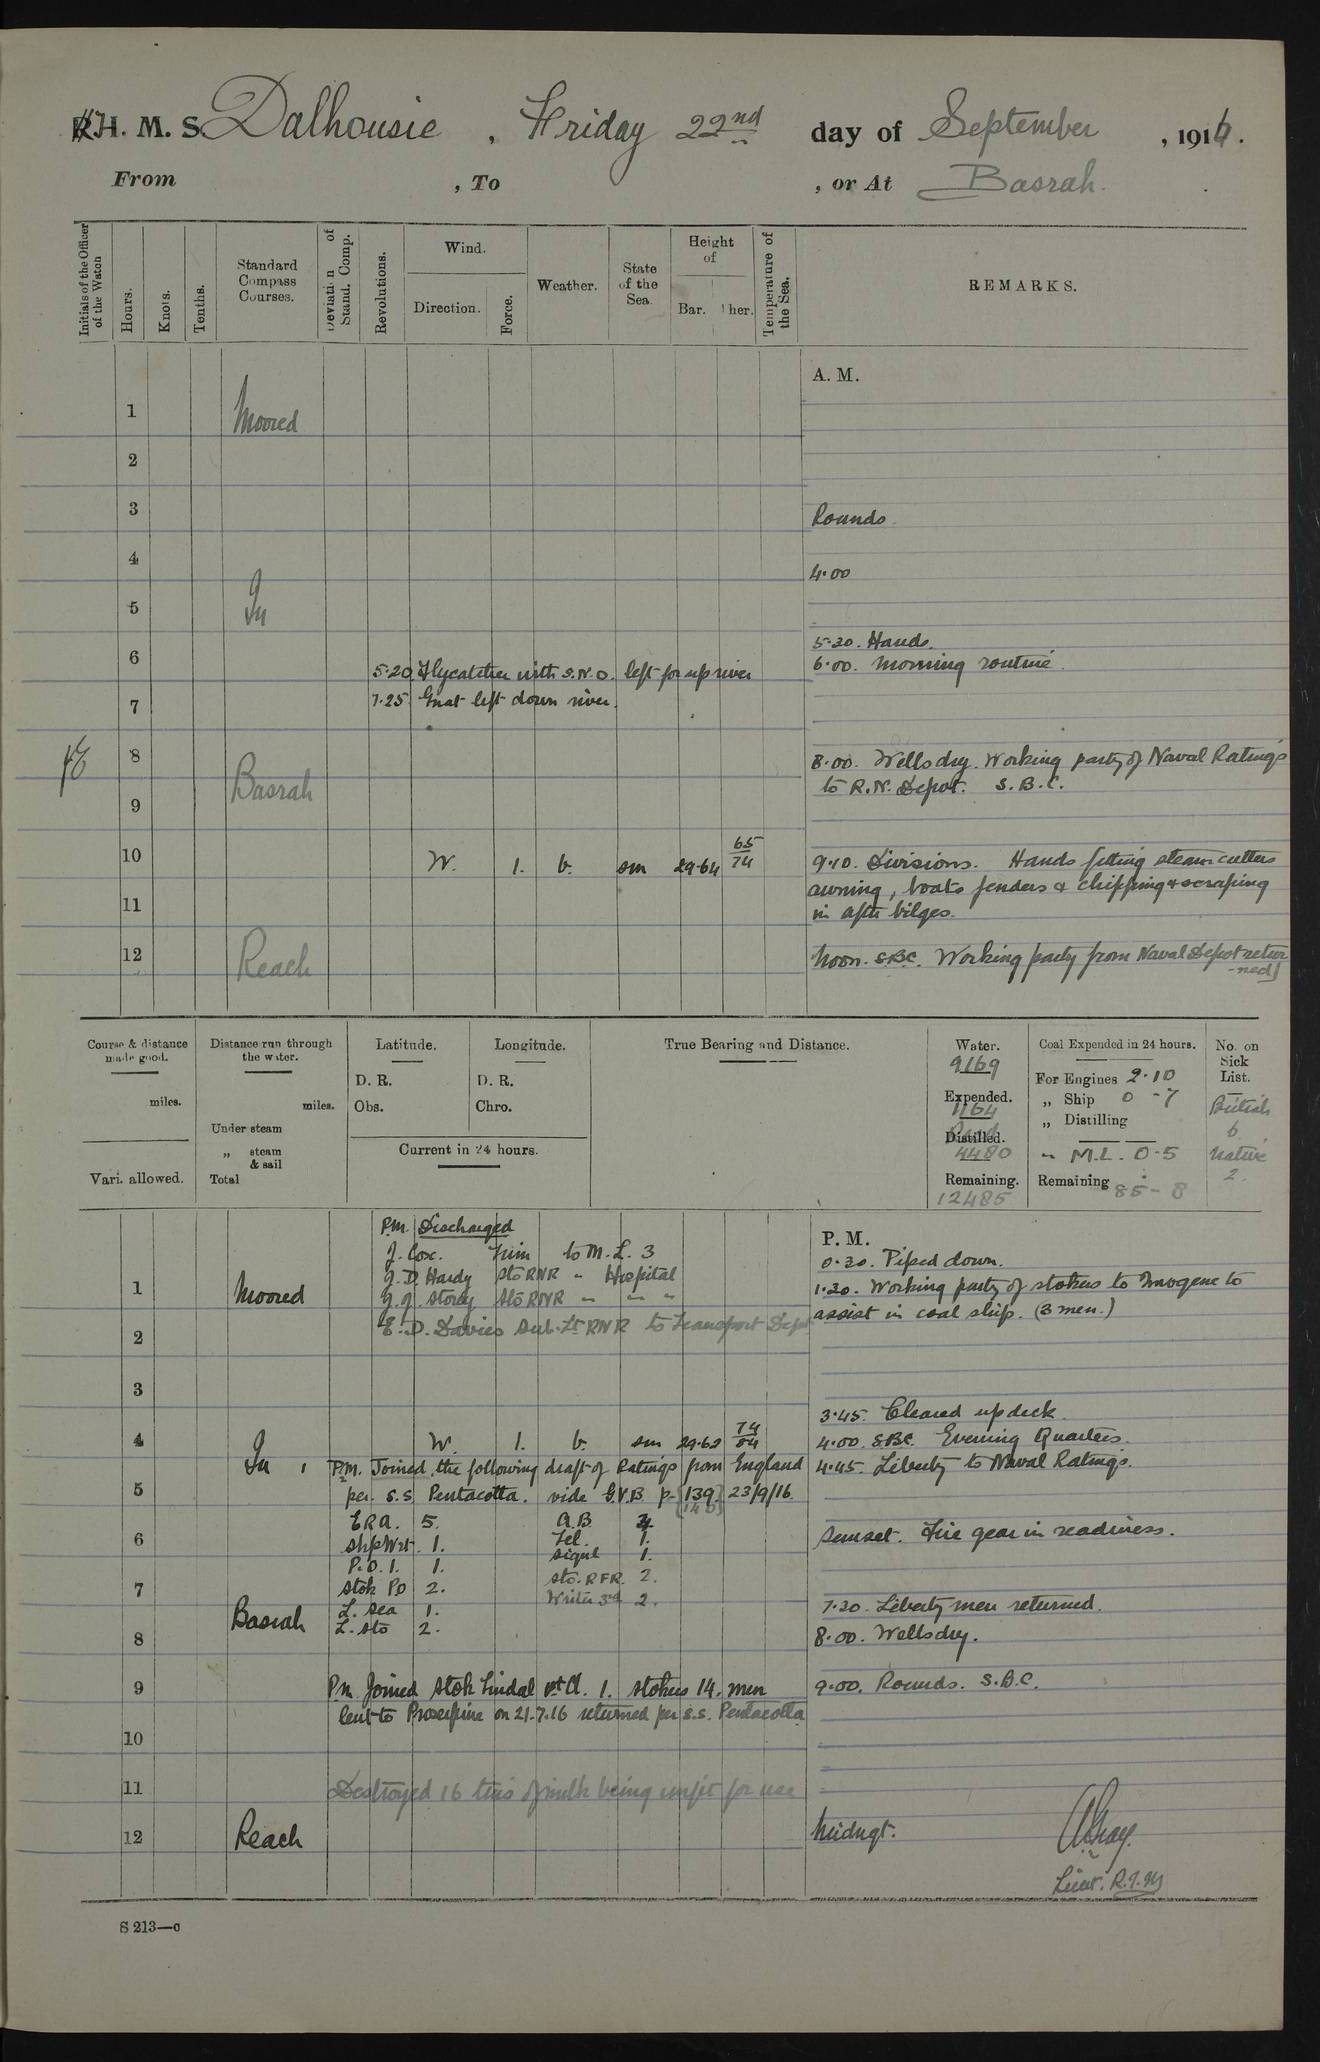 H. M. S. Dalhousie, Friday 22nd day of September, 1916.
From , To , or At Basrah.
Initials of the Officer of the Watch
Hours.
Knots.
Tenths.
Standard Compass Courses.
Deviation of Stand. Comp.
Revolutions.
Wind.
Direction.
Force.
Weather.
State of the Sea.
Height of
Bar. Ther.
Temperature of the Sea.
REMARKS.
A. M.
1 Moored
2
3 Rounds.
4 4.00
5 In
5.30. Hands.
6 6.00. Morning routine.
5.20 Flycatcher with S.N.O. left for up river
7 7.25 Gnat left down river.
8 8.00. Wells dry. Working party of Naval Ratings
Basrah to R.N. Depot. S.B.C.
9
10 W. 1. b. sm 29.64 65/74 9.10. Divisions. Hands fitting steam cutters
awning, boats fenders & chipping & scraping
11 in after bilges.
12 Reach Noon. SBC. Working party from Naval Depot retur
-ned
Course & distance made good.
miles.
Vari. allowed.
Distance run through the water.
miles.
Under steam
„ steam & sail
Total
Latitude.
D. R.
Obs.
Longitude.
D. R.
Chro.
Current in 24 hours.
True Bearing and Distance.
Water.
9169
Expended.
1164
Distilled.
4480
Remaining.
12485
Coal Expended in 24 hours.
For Engines 2.10
„ Ship 0 - 7
„ Distilling
„ M.L. 0-5
Remaining 85 - 8
No. on Sick List.
British
6
Native
2.
P.M. Discharged
J. Cox. to M.L. 3
J. D. Hardy Sto RNR " Hospital
J. J. Storey Sto RNR " " "
E. D. Davies Sub. Lt RNR to Transport Depot
P. M.
0.30. Piped down.
1 Moored 1.30. Working party of stokers to Imogene to
assist in coal ship. (3 men.)
2
3
3.45. Cleared up deck.
4 W. 1. b. sm 29.62 74/84 4.00. SBC. Evening Quarters.
In P.M. Joined the following draft of Ratings from England 4.45. Liberty to Naval Ratings.
5 per S.S. Pentacotta. vide G.V.B p- 139 23/9/16.
ERA. 5. A.B 4.
6 ShpWrt. 1. Tel. 1. Sunset. Fire gear in readiness.
P.O.1. 1. Signl 1.
7 Stok PO 2. Sto. RFR. 2.
L. Sea 1. Writer 3rd 2. 7.30. Liberty men returned.
Basrah L. Sto 2.
8 8.00. Wells dry.
9 P.M. Joined Stok 1. stokers 14. men 9.00. Rounds. S.B.C.
lent to Proserpine on 21.7.16 returned per S.S. Pentacotta
10
11 Destroyed 16 tins of milk being unfit for use
12 Reach Midngt.
A Gray.
Lieut. R.I.M
S 213—c